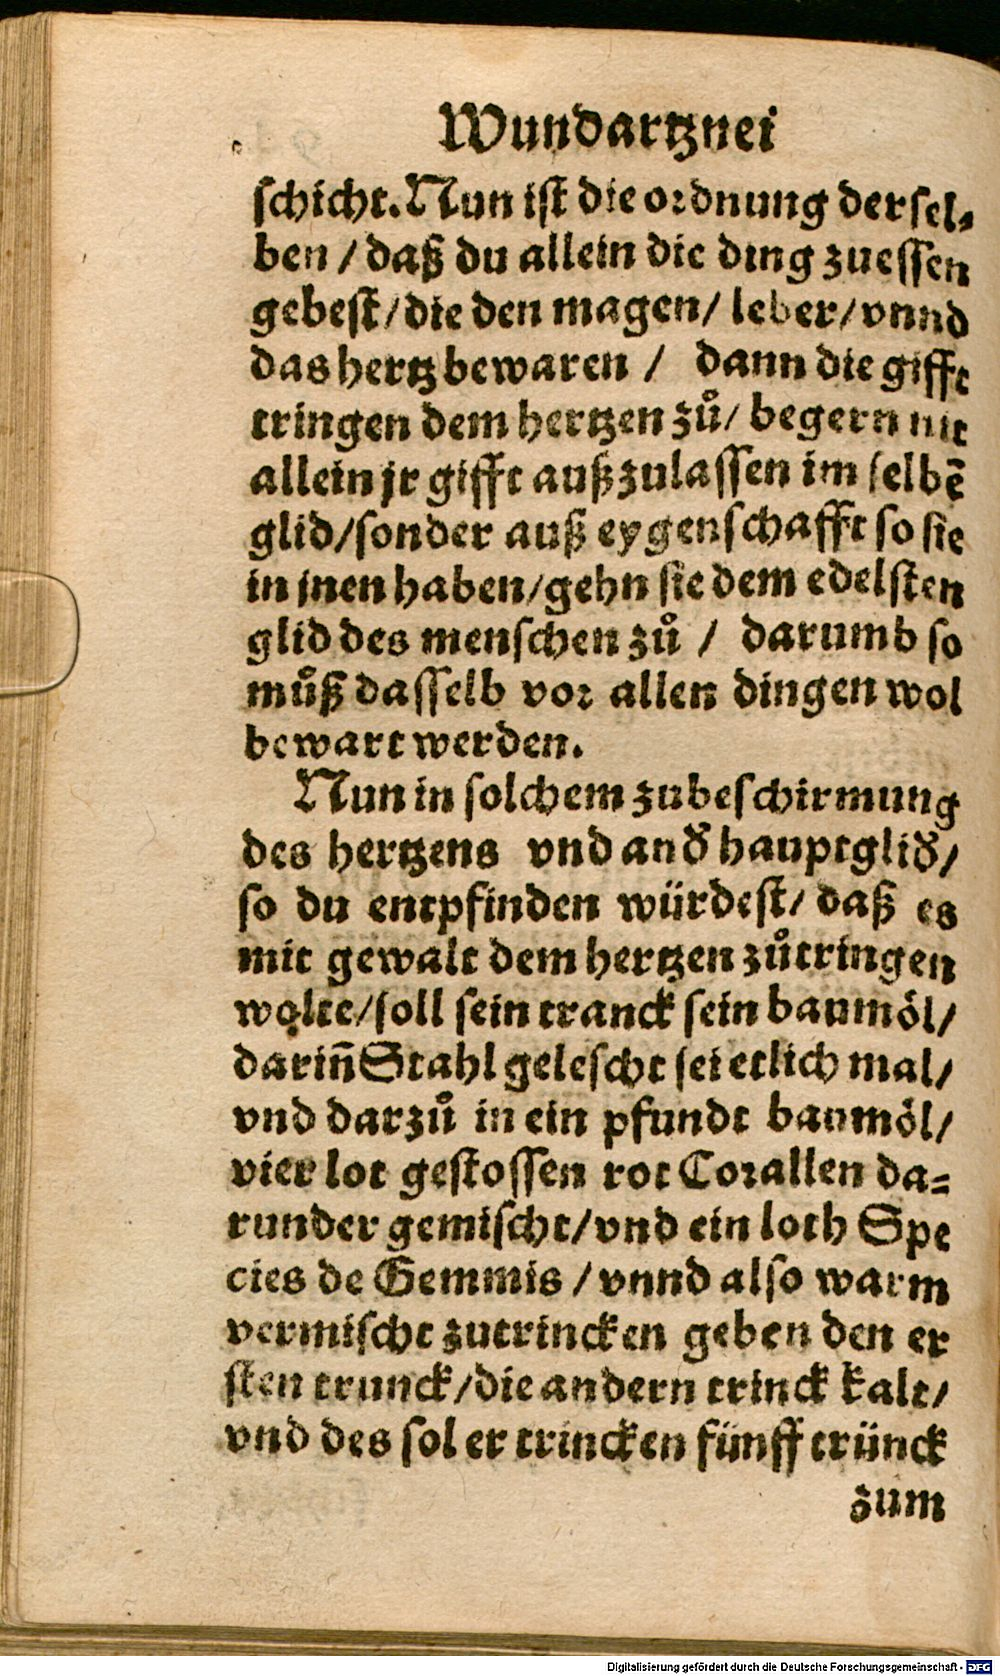 Wundartznei
schicht. Nun ist die ordnung der sel-
ben / daß du allein die ding zuessen
gebest / die den magen / leber / vnnd
das hertz bewaren / dann die gifft
tringen dem hertzen zů / begern nit
allein jr gifft auß zulassen im selbẽ
glid / sonder auß eygenschafft so sie
in jnen haben / gehn sie dem edelsten
glid des menschen zů / darumb so
můß dasselb vor allen dingen wol
bewart werden.
Nun in solchem zubeschirmung
des hertzens vnd and̓ hauptglid̓ /
so du entpfinden würdest / daß es
mit gewalt dem hertzen zůtringen
wolte / soll sein tranck sein baumöl /
darin̄ Stahl gelescht sei etlich mal /
vnd darzů in ein pfundt baumöl /
vier lot gestossen rot Corallen da-
runder gemischt / vnd ein loth Spe
cies de Gemmis / vnnd also warm
vermischt zutrincken geben den er
sten trunck / die andern trinck kalt /
vnd des sol er trincken fünff trünck
zum
Digitalisierung gefördert durch die Deutsche Forschungsgemeinschaft - DFG